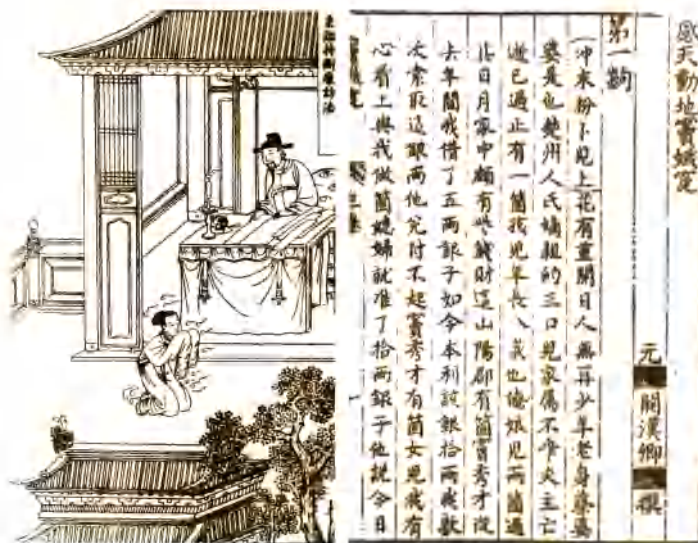 感天動地竇娥冤
元 關漢卿 撰
第一齣
冲末扮卜兒上花有重開日人無再少年老身蔡婆
婆是也楚州人氏嫡親的三口兒家屬不幸夫主亡
逝已過止有一箇孩兒年長八歲也俺娘兒兩箇過
日月家中頗有些錢財這山陽郡有箇竇秀才從
去年間我借了五兩銀子如今本利該銀拾兩我數
次索取這銀兩他兌付不起竇秀才有箇女兒我有
心看上與我做箇媳婦就准了拾兩銀子他說今日
秉鑑持衡廉訪法